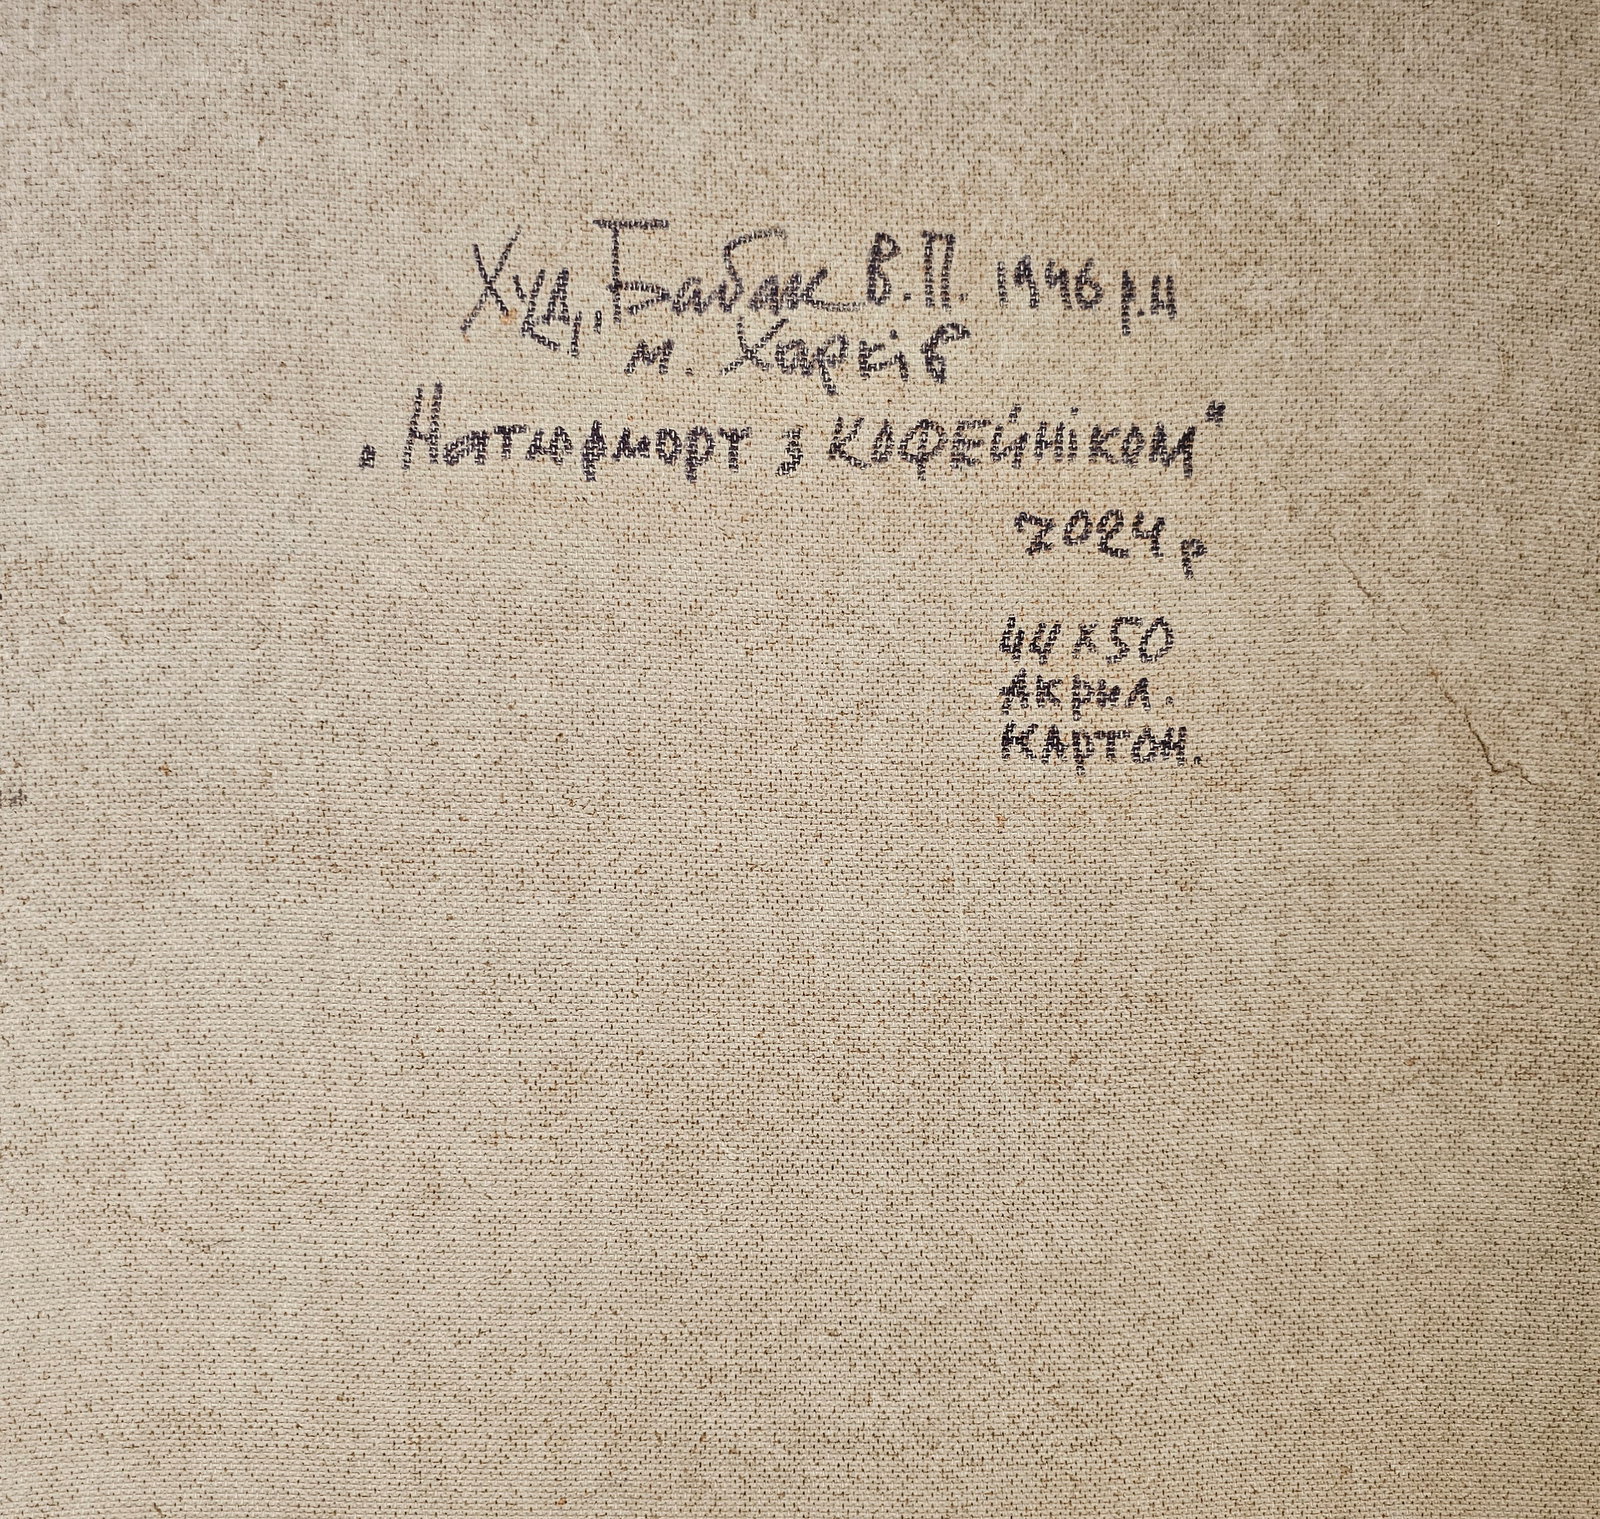 Худ. Бабак В.П. 1946 р.н
м. Харків
"Натюрморт з кофейніком"
2024р
44х50
Акрил.
Картон.